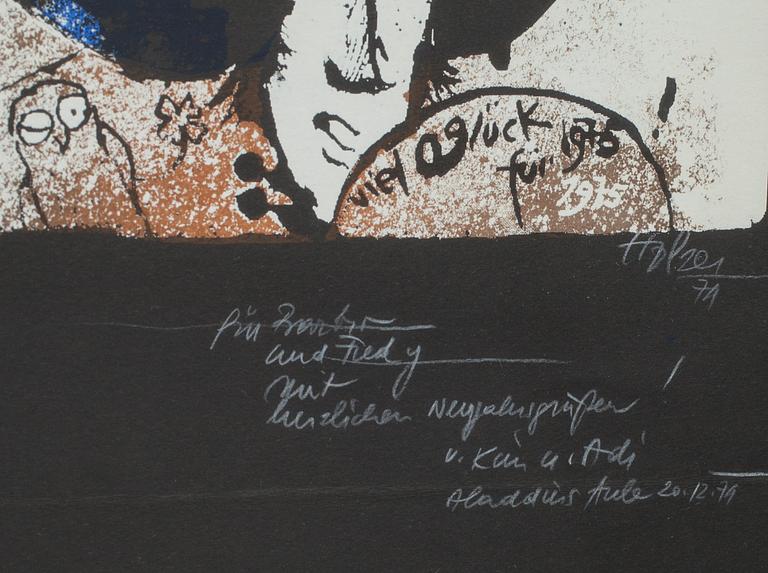 viel glück
für 1975
1975
Holzer
74
für
und Fredy
mit
herzlichen Neujahrsgrüßen !
v. u. Adi
20.12.74